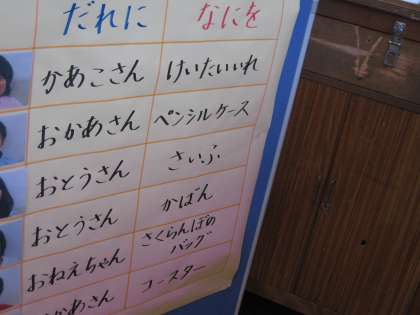 だれに なにを
かあこさん けいたいいれ
おかあさん ペンシルケース
おとうさん さいふ
おとうさん かばん
おねえちゃん さくらんぼの
バッグ
かあさん コースター